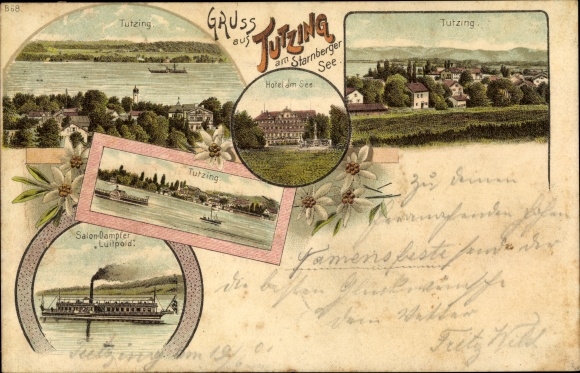 868
Tutzing
GRUSS
aus
TUTZING
am Starnberger
See.
Tutzing.
Hotel am See
Tutzing
Salon-Dampfer
"Luitpold".
Zu deinem
Namensfeste sende dir
die besten Glückwünsche
dein Vetter
Fritz
Tutzing am